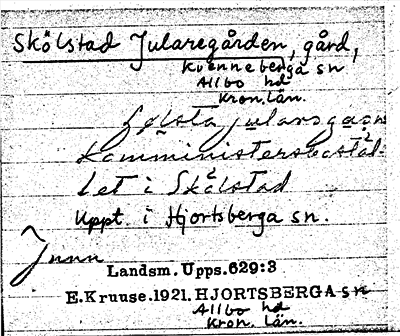 Skölstad Jularegården, gård,
Kvenneberga sn
Allbo hd
Kron. län.
komministersbostäl-
let i Skölstad
Uppt. i Hjortsberga sn.
Landsm. Upps. 629:3
E. Kruuse. 1921. HJORTSBERGA sn
Allbo hd
Kron. län.